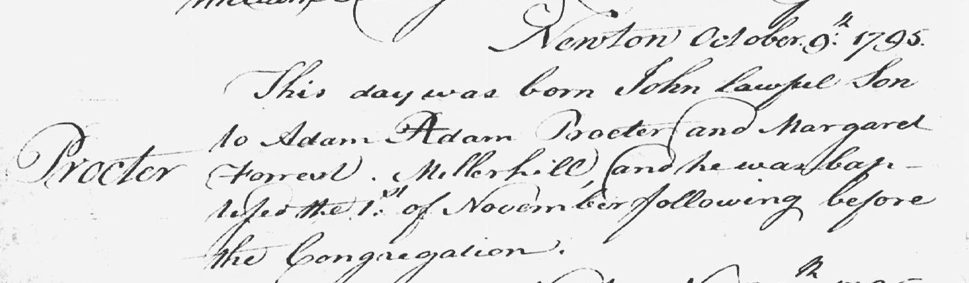 Newton October. 9th. 1795.
This day was born John lawful Son
to Adam Adam Procter (and Margaret
Procter
Forrest. Millerhill, (and he was bap-
tised the 1st. of November following before
the Congregation.